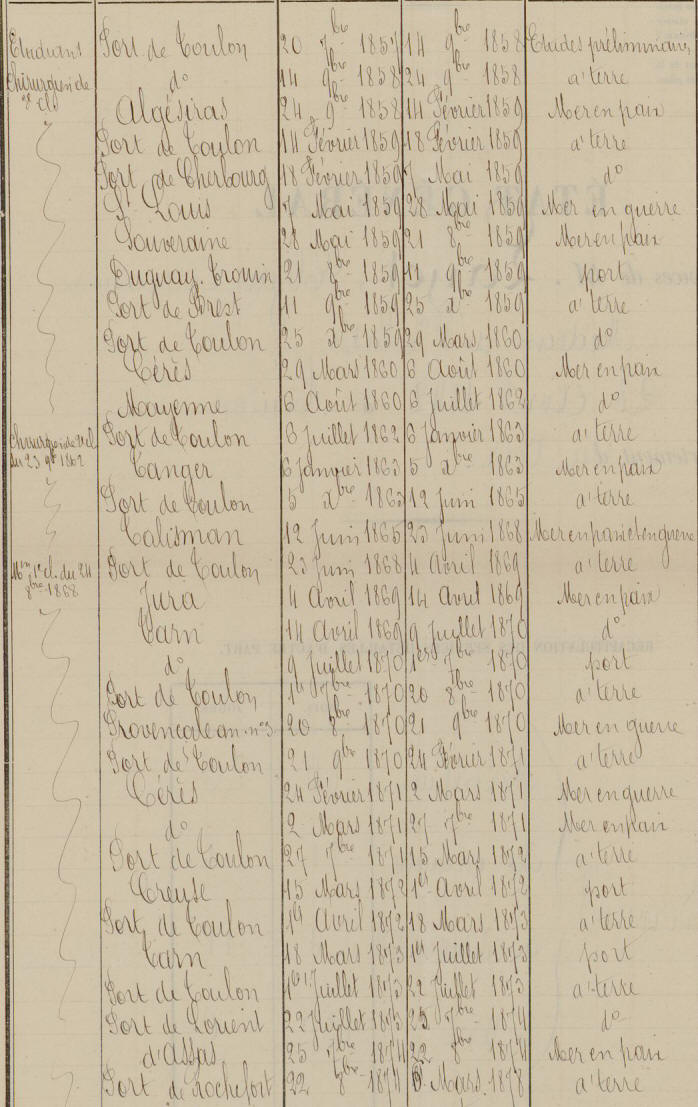 Etudiant Port de Toulon 20 7bre 1857 14 9bre 1858 Etudes préliminaires
Chirurgien de 3e cl. do 14 9bre 1858 24 9bre 1858 a' terre
Algésiras 24 9bre 1858 14 Février 1859 Mer en paix
Port de Toulon 14 Février 1859 18 Février 1859 a' terre
Port de Cherbourg 18 Février 1859 7 Mai 1859 do
St Louis 7 Mai 1859 28 Mai 1859 Mer en guerre
Souveraine 28 Mai 1859 21 8bre 1859 Mer en paix
Duguay-Trouin 21 8bre 1859 11 9bre 1859 port
Port de Brest 11 9bre 1859 25 xbre 1859 a' terre
Port de Toulon 25 xbre 1859 29 Mars 1860 do
Cérès 29 Mars 1860 6 Août 1860 Mer en paix
Mayenne 6 Août 1860 6 Juillet 1862 do
Chirurgien de 2e cl. Port de Toulon 6 Juillet 1862 6 Janvier 1863 a' terre
du 23 9bre 1862 Tanger 6 Janvier 1863 5 xbre 1863 Mer en paix
Port de Toulon 5 xbre 1863 12 Juin 1865 a' terre
Talisman 12 Juin 1865 23 Juin 1868 Mer en paix et en guerre
Min 1e cl. du 24 Port de Toulon 23 Juin 1868 4 Avril 1869 a' terre
8bre 1868 Jura 4 Avril 1869 14 Avril 1869 Mer en paix
Tarn 14 Avril 1869 9 Juillet 1870 do
do 9 Juillet 1870 1er 7bre 1870 port
Port de Toulon 1er 7bre 1870 20 8bre 1870 a' terre
Provençale an. no 3 20 8bre 1870 21 9bre 1870 Mer en guerre
Port de Toulon 21 9bre 1870 24 Février 1871 a' terre
Cérès 24 Février 1871 2 Mars 1871 Mer en guerre
do 2 Mars 1871 27 7bre 1871 Mer en paix
Port de Toulon 27 7bre 1871 15 Mars 1872 a' terre
Creuse 15 Mars 1872 1er Avril 1872 port
Port de Toulon 1er Avril 1872 18 Mars 1873 a' terre
Tarn 18 Mars 1873 1er Juillet 1873 port
Port de Toulon 1er Juillet 1873 22 Juillet 1873 a' terre
Port de Lorient 22 Juillet 1873 25 7bre 1874 do
d'Assas 25 7bre 1874 22 8bre 1874 Mer en paix
Port de Rochefort 22 8bre 1874 Mars 1878 a' terre